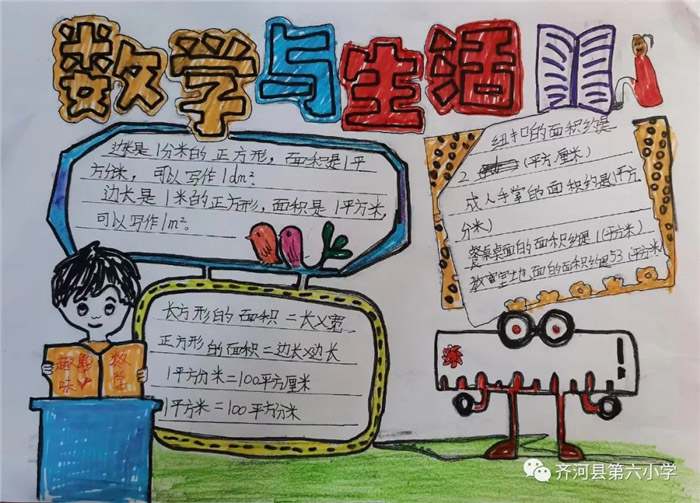 数学与生活
边长是1分米的正方形，面积是1平
方分米，可以写作1dm²。
边长是1米的正方形，面积是1平方米，
可以写作1m²。
纽扣的面积约是
2 (平方厘米)
成人手掌的面积约是1(平方
分米)
餐桌桌面的面积约是1(平方米)
教室地面的面积约是53(平方米)
长方形的面积=长×宽
正方形的面积=边长×边长
1平方分米=100平方厘米
1平方米=100平方分米
趣味
数学
齐河县第六小学